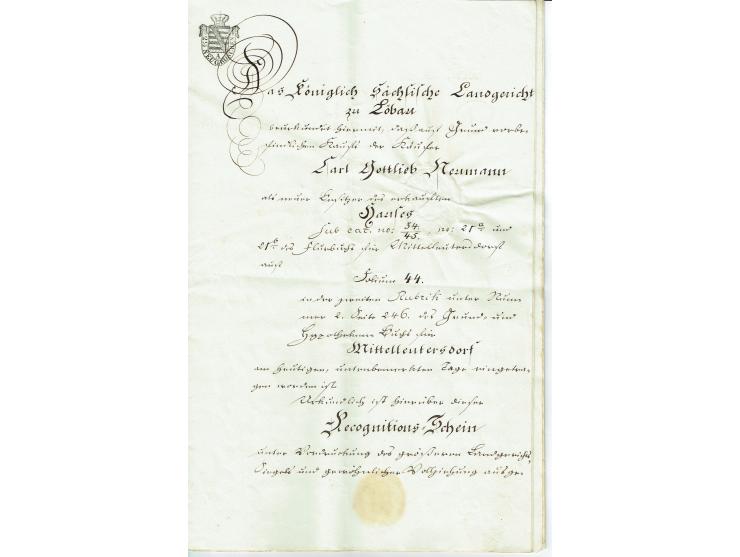 Das Königlich Sächsische Landgericht
zu Löbau
beurkundet hiermit, daß auf Grund vorbe-
findlichen Kaufs der Käufer
Carl Gottlieb Neumann
als neuer Besitzer des erkauften
Hauses
sub cat. no: 34./45., no: 21a und
21b des Flurbuchs für Mittelleutersdorf
auf
Folium 44.
in der zweiten Rubrik unter Num-
mer 2. Seite 246. des Grund- und
Hypotheken Buchs für
Mittelleutersdorf
am heutigen, untenbemerkten Tage eingetra-
gen worden ist.
Urkundlich ist hierüber dieser
Recognitions-Schein
unter Vordruckung des größeren Landgerichts
Siegels und gewöhnlicher Vollziehung ausge-